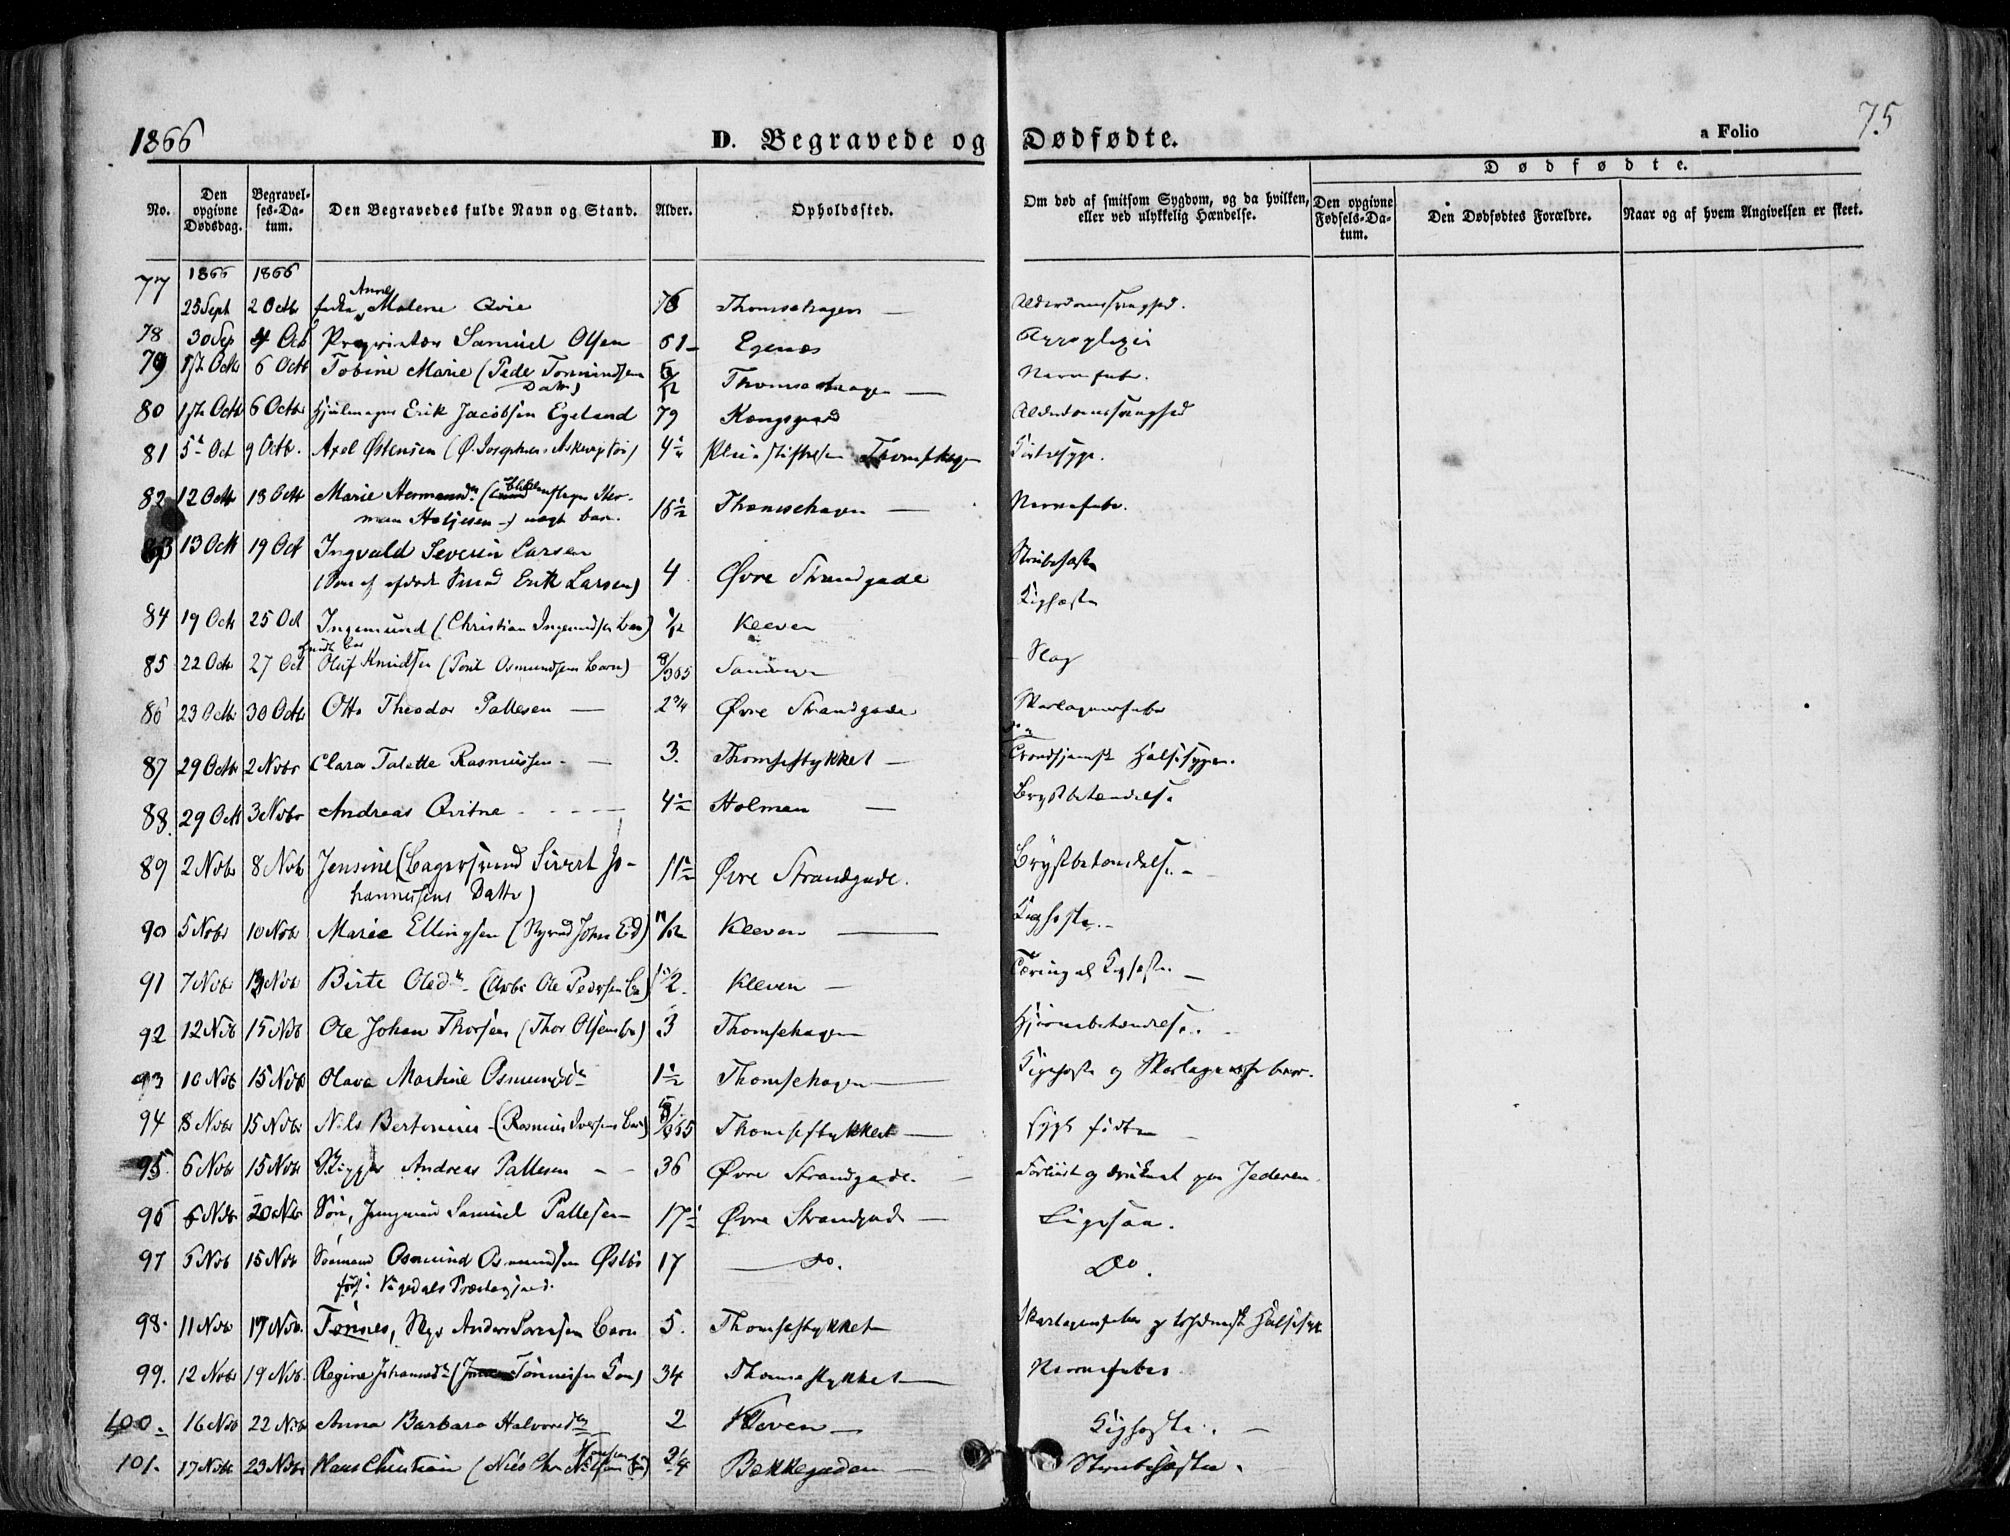 1866 D. Begravede og Dødfødte. a Folio 75
Dødfødte.
No. Den opgivne Dødsdag. Begravelses-Datum. Den Begravedes fulde Navn og Stand. Alder. Opholdssted. Om død af smitsom Sygdom, og da hvilken, eller ved ulykkelig Hændelse. Den opgivne Fødsels-Datum. Den Dødfødtes Forældre. Naar og af hvem Angivelsen er skeet.
1866 1866
Anne
77 23 Sept 2 Octb Malene Qvie 76 Thomsehagen — Alderdomssvaghed.
78 30 Sep 4 Octb Proprietær Samuel Olsen 61 Egenæs Apoplexi
79 1ste Octb 6 Octb Tobine Marie (Peder Tonnindsen Datter) 5/12 Thomsehagen — Nervefeber.
80 1ste Octb 6 Octb Hjulmager Erik Jacobsen Egeland 79 Kongsgaard Alderdomssvaghed
81 5 Oct 9 Octb. Axel Østensen (Ø. Josephsens) 4½ Pleiestiftelsen Thomsehagen Kirtelsyge.
82 12 Octb 18 Octb Marie Hermansd. (Blikkenslager Herman Heljesen) uægt barn. 16½ Thomsehagen — Nervefeber.
83 13 Octb 19 Oct Ingvald Severin Larsen
(Søn af afdøde Smed Erik Larsen) 4 Øvre Strandgade Strubehoste
84 19 Octb 25 Oct Ingemund (Christian Ingemundsen barn) 1/12 Kleven Kighoste
85 22 Octb 27 Oct Oluf Knudsen (Osmundsens barn) 8/365 Sandvigen Slag
86 23 Octb 30 Octb Otto Theodor Pallesen — 2¾ Øvre Strandgade Skarlagensfeber
87 29 Octb 2 Novbr Clara Talette Rasmussen. — 3. Thomsestykket — Trondhjemsk Halssygen.
88. 29 Octb 3 Novbr Andreas Qvitne - - - 4½ Holmen — Brystbetændelse
89 2 Nobr 8 Nobr Jensine (Bagersvend Sivert Johannessens Datter) 11½ Øvre Strandgade. Brystbetændelse. -
90 5 Nobr 10 Nobr Marie Ellingsen (John Ed) 11/12 Kleven — Kighoste. -
91 7 Nobr 13 Nobr Birte Olesd. (Arbr Ole Pedersen) 1½ Kleven — Tæring af Kighoste. —
92 12 Nob 15 Nob Ole Johan Thorsen (Thor Olsens barn) 3 Thomsehagen Hjernebetændelse.
93 10 Nob 15 Nob Olava Martine Osmundsd. 1½ Thomsehagen — Kighoste og Skarlagensfeber.
94 8 Nobr 15 Nobr Nils Bertonius (Rasmus Iversens barn) Thomsestykket — sygt født —
95. 6 Nobr 15 Nobr Skipper Andreas Pallesen - - 36 Øvre Strandgade. — Forliist og druknet paa Jæderen.
96 6 Nobr 20 Nobr Søn, Jungmand Samuel Pallesen 17½ Øvre Strandgade — Ligesaa.
97 6 Nob 15 Nob Sømand Osmund Osmundsen Østbø
Præstegjeld. 17 do. Do.
98. 11 Nob 17 Nob. Tønnes, Anders Larsens Barn 5. Thomsestykket Skarlagensfeber og trhjemsk Halssyge
99. 12 Nobr 19 Nob. Regine Johannesd. (Tønnessen Kone) 34 Thomsestykket — Nervefeber
100. 16 Nob 22 Nob Anna Barbara Halvorsd. 2 Kleven — Kighoste. —
101. 17 Nobr 23 Nobr Hans Christian (Niels Chr. Hansen) 2¼ Bækkegaden — Strubehoste.